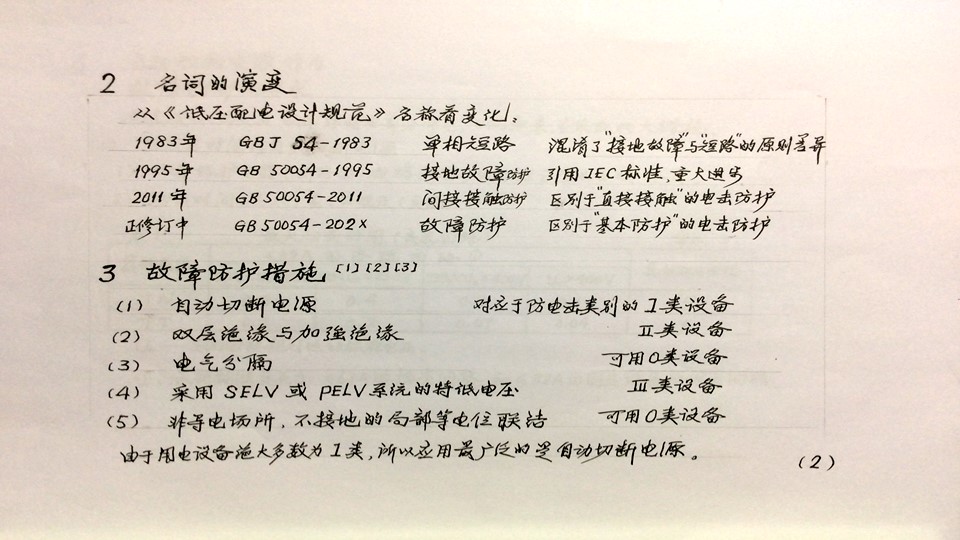 2 名词的演变
从《低压配电设计规范》名称看变化:
1983年 GBJ 54-1983 单相短路 混淆了"接地故障"与"短路"的原则差异
1995年 GB 50054-1995 接地故障防护 引用IEC标准,重大进步
2011年 GB 50054-2011 间接接触防护 区别于"直接接触"的电击防护
正修订中 GB 50054-202x 故障防护 区别于"基本防护"的电击防护
3 故障防护措施[1][2][3]
(1) 自动切断电源 对应于防电击类别的I类设备
(2) 双层绝缘与加强绝缘 II类设备
(3) 电气分隔 可用0类设备
(4) 采用SELV或PELV系统的特低电压 III类设备
(5) 非导电场所,不接地的局部等电位联结 可用0类设备
由于用电设备绝大多数为I类,所以应用最广泛的是自动切断电源。
(2)